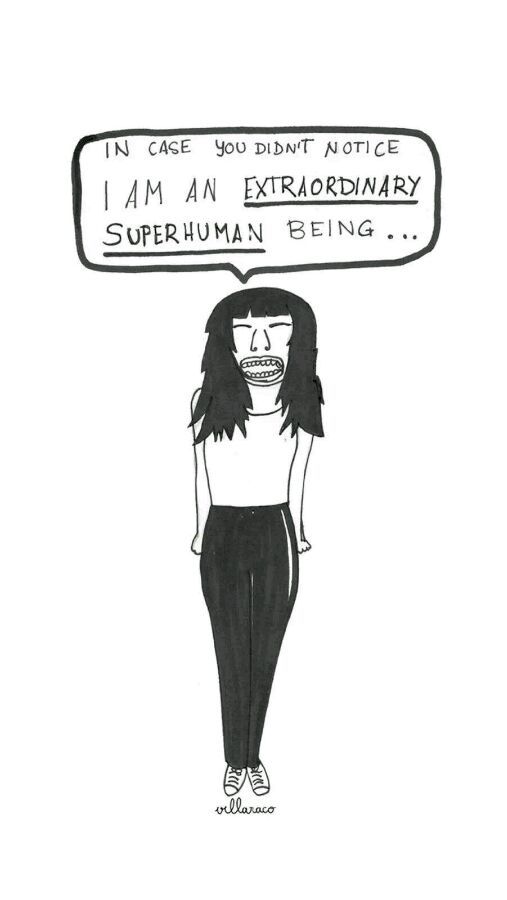 IN CASE YOU DIDN'T NOTICE
I AM AN EXTRAORDINARY
SUPERHUMAN BEING...
villaraco